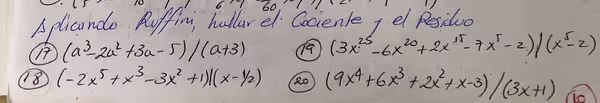 Aplicando Ruffini, hallar el Cociente y el Residuo
17 (a³-2a²+3a-5)/(a+3) 19 (3x²⁵-6x²⁰+2x¹⁵-7x⁵-2)/(x⁵-2)
18 (-2x⁵+x³-3x²+1)/(x-1/2) 20 (9x⁴+6x³+2x²+x-3)/(3x+1)